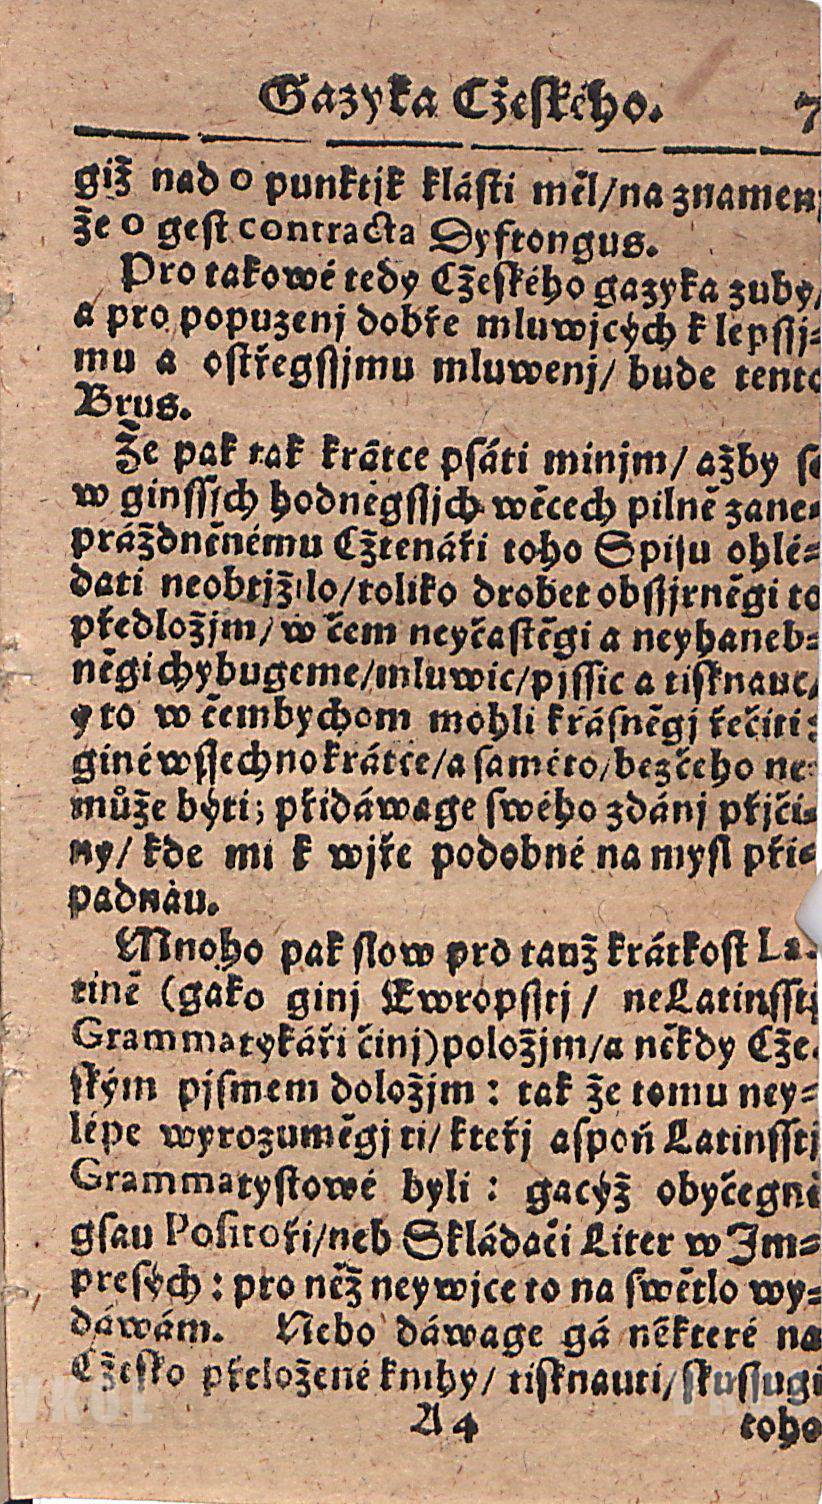 Gazyka Cžeského. 7
giž nad o punktjk klásti měl/na znamenj
že o gest contracta Dyftongus.
Pro takowé tedy Cžeského gazyka zuby/
a pro popuzenj dobře mluwjcých k lepssj⸗
mu a ostřegssjmu mluwenj/ bude tento
Brus.
Že pak tak krátce psáti minjm/ ažby se
w ginssjch hodněgssjch wěcech pilně zane⸗
práždněnému Cžtenáři toho Spisu ohlé⸗
dati neobtjžilo/toliko drobet obssjrněgi to
předložjm/ w čem neyčastěgi a neyhaneb⸗
něgi chybugeme/mluwic/pjssic a tisknauc/
y to w čembychom mohli krásněgj řečiti:
giné wssechno krátce/a saméto/bez čeho ne⸗
může býti; přidáwage swého zdánj přjči⸗
ny/ kde mi k wjře podobné na mysl při⸗
padnau.
Mnoho pak slow pro tauž krátkost La⸗
tině (gako ginj Ewropsstj/ neLatinsstj
Grammatykáři činj) položjm/a někdy Cže⸗
ským pjsmem doložjm: tak že tomu ney⸗
lépe wyrozuměgj ti/ kteřj aspoň Latinsstj
Grammatystowé byli: gacýž obyčegně
gsau Positoři/neb Skládači Liter w Jm⸗
presých: pro něž neywjce to na swětlo wy⸗
dáwám. Nebo dáwage gá některé na
Cžesko přeložené knihy/ tisknauti/skussugi
A4 toho
VKOL